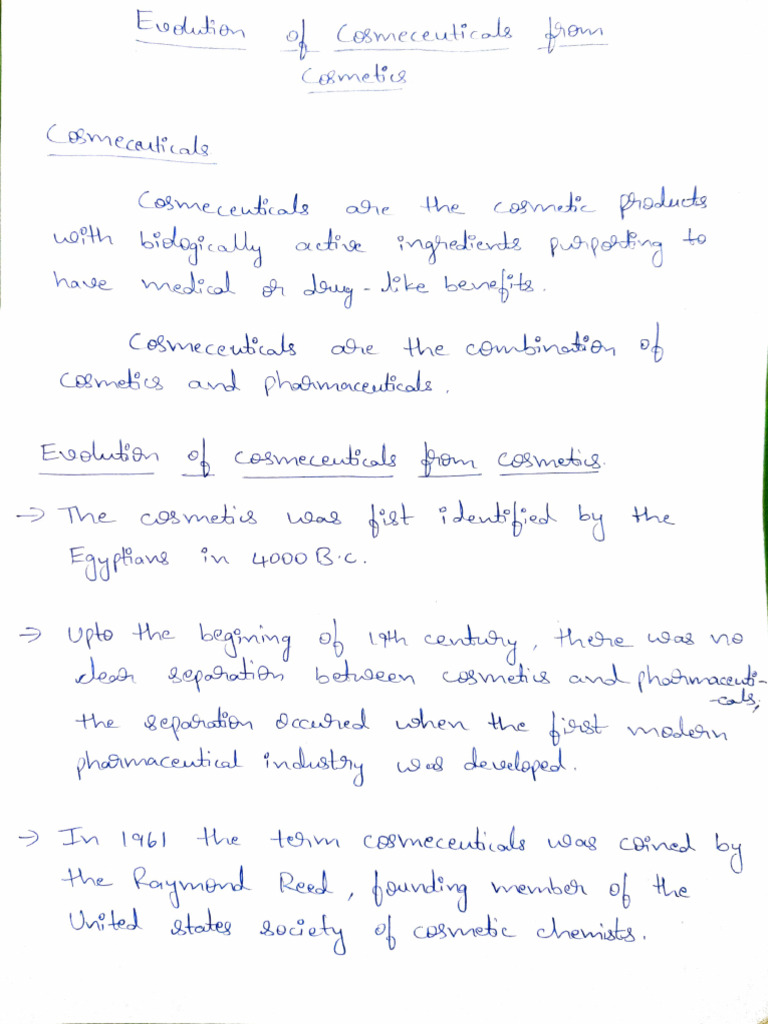 Evolution of Cosmeceuticals from
Cosmetics
Cosmeceuticals
Cosmeceuticals are the cosmetic products
with biologically active ingredients purporting to
have medical or drug-like benefits.
Cosmeceuticals are the combination of
cosmetics and pharmaceuticals.
Evolution of cosmeceuticals from cosmetics.
→ The cosmetics was fist identified by the
Egyptians in 4000 B.C.
→ Upto the begining of 19th century, there was no
clear separation between cosmetics and pharmaceuti-
-cals,
the separation occured when the first modern
pharmaceutical industry was developed.
→ In 1961 the term cosmeceuticals was coined by
the Raymond Reed, founding member of the
United states society of cosmetic chemists.